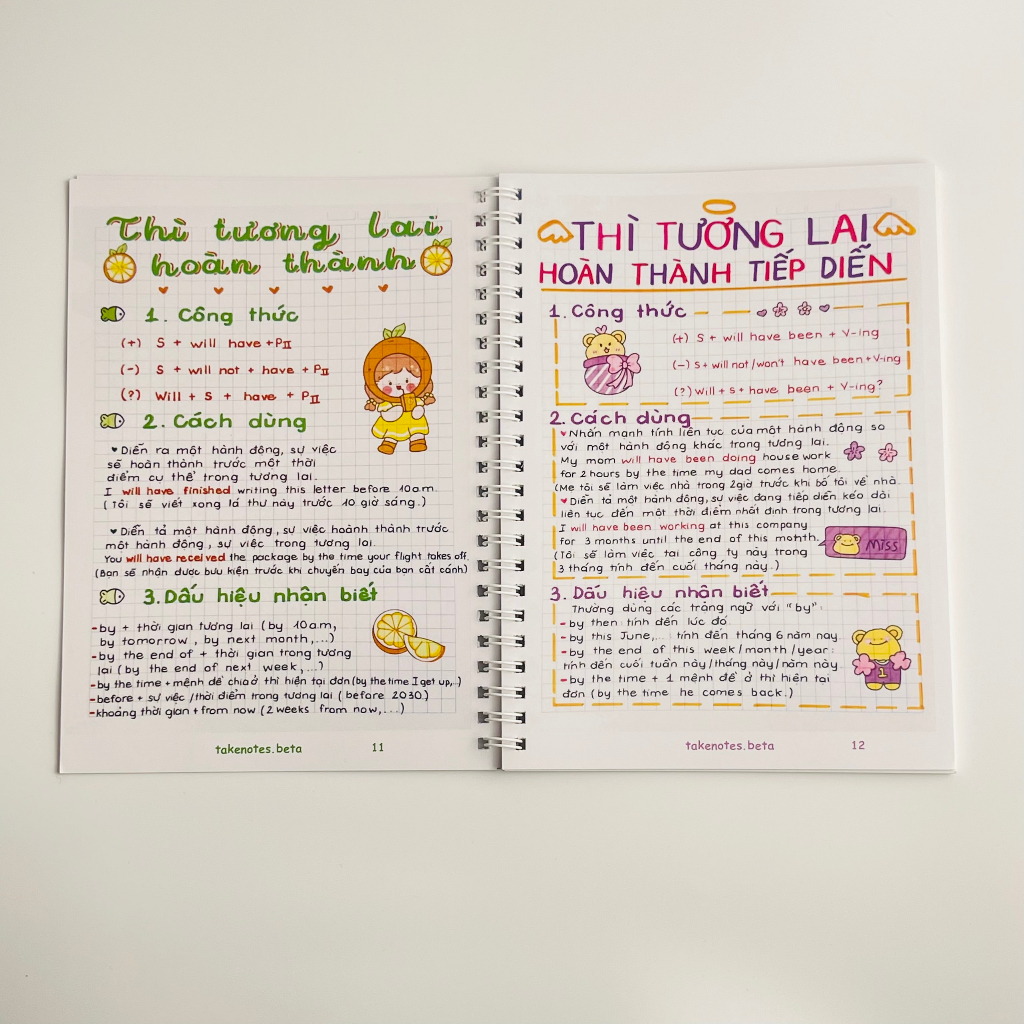 Thì tương lai
hoàn thành
1. Công thức
(+) S + will have + PII
(-) S + will not + have + PII
(?) Will + S + have + PII
2. Cách dùng
♥ Diễn ra một hành động, sự việc
sẽ hoàn thành trước một thời
điểm cụ thể trong tương lai.
I will have finished writing this letter before 10a.m.
(Tôi sẽ viết xong lá thư này trước 10 giờ sáng.)
♥ Diễn tả một hành động, sự việc hoành thành trước
một hành động, sự việc trong tương lai.
You will have received the package by the time your flight takes off.
(Bạn sẽ nhận được bưu kiện trước khi chuyến bay của bạn cất cánh)
3. Dấu hiệu nhận biết
- by + thời gian tương lai (by 10a.m,
by tomorrow, by next month,...)
- by the end of + thời gian trong tương
lai (by the end of next week,...)
- by the time + mệnh đề chia ở thì hiện tại đơn (by the time I get up,..)
- before + sự việc / thời điểm trong tương lai (before 2030)
- khoảng thời gian + from now (2 weeks from now,...)
takenotes.beta 11
THÌ TƯƠNG LAI
HOÀN THÀNH TIẾP DIỄN
1. Công thức
(+) S + will have been + V-ing
(-) S + will not / won't have been + V-ing
(?) Will + S + have been + V-ing?
2. Cách dùng
♥ Nhấn mạnh tính liên tục của một hành động so
với một hành động khác trong tương lai.
My mom will have been doing housework
for 2 hours by the time my dad comes home.
(Mẹ tôi sẽ làm việc nhà trong 2 giờ trước khi bố tôi về nhà.
♥ Diễn tả một hành động, sự việc đang tiếp diễn kéo dài
liên tục đến một thời điểm nhất định trong tương lai.
I will have been working at this company
for 3 months until the end of this month.
(Tôi sẽ làm việc tại công ty này trong
3 tháng tính đến cuối tháng này.)
MISS
3. Dấu hiệu nhận biết
Thường dùng các trạng ngữ với "by":
- by then: tính đến lúc đó.
- by this June,... : tính đến tháng 6 năm nay.
- by the end of this week / month / year:
tính đến cuối tuần này / tháng này / năm này.
- by the time + 1 mệnh đề ở thì hiện tại
đơn (by the time he comes back.)
takenotes.beta 12